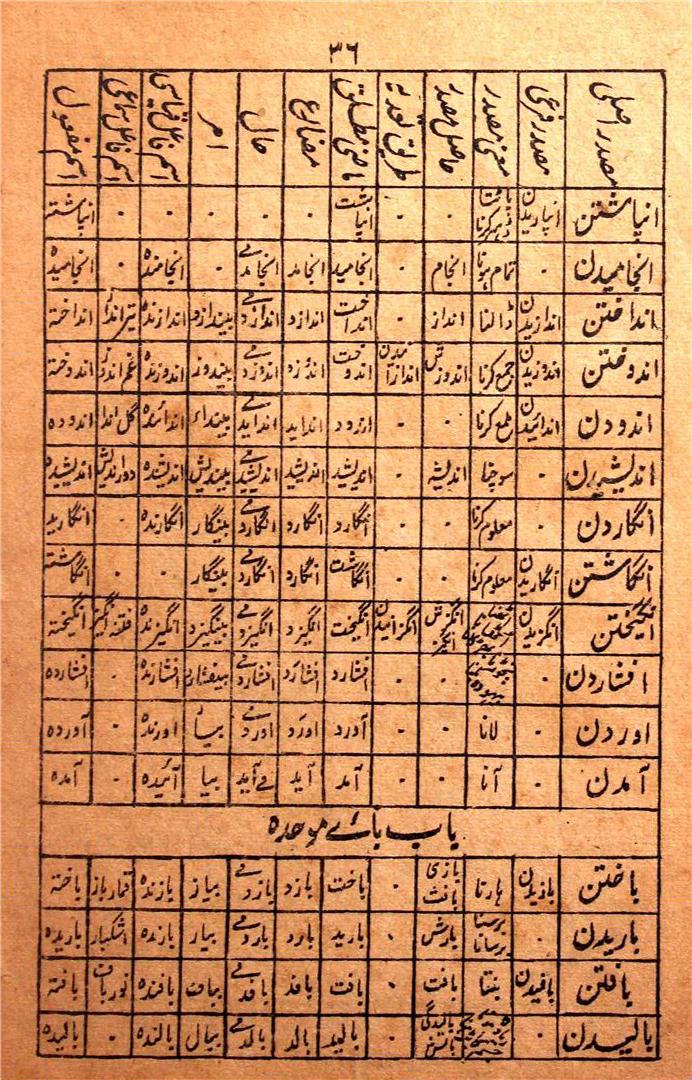 ۳۶
مصدر اصلی مصدر فرعی معنی مصدر حاصل مصدر طریق تعدیہ ماضی مطلق مضارع حال امر اسم فاعل قیاسی اسم فاعل سماعی اسم مفعول
انپاشتن انپاریدن انپاشت انپاشتہ
انجامیدن تمام ہونا انجام انجامید انجامد انجامدے انجامندہ انجامیدہ
انداختن اندازیدن ڈالنا انداز انداخت اندازد اندازدے بیندازد اندازندہ تیرانداز انداختہ
اندوختن اندوزیدن جمع کرنا اندوزش اندوخت اندوزد اندوزدے بیندوز اندوزندہ اندوختہ
اندودن اندائیدن ملمع کرنا اندود انداید اندایدے بیندائے اندائندہ گل اندا اندودہ
اندیشیدن سوچنا اندیشہ اندیشید اندیشد اندیشدے بیندیش اندیشندہ دوراندیش اندیشیدہ
انگاردن معلوم کرنا انگارد انگارد انگاردے بینگار انگارندہ انگارید
انگاشتن انگاریدن معلوم کرنا انگاشت انگارد انگاردے بینگار انگاشتہ
انگیختن انگزیدن انگزش انگیز انگزانیدن انگیخت انگیزد انگیزدے بینگیزد انگیزندہ فتنہ انگیز انگیختہ
افشاردن افشارد افشارد افشاردے افشارندہ افشاردہ
اوردن لانا آورد اورد اوردے بیا اورندہ آوردہ
آمدن آنا آمد آید مے آید بیا آئندہ آمدہ
باب بائے موحدہ
باختن بازیدن ہارنا بازی بافت باخت بازد بازدے بباز بازندہ قمارباز باختہ
باریدن برسنا برسانا بارش بارید بارد باردے ببار بارندہ اشکبار باریدہ
بافتن بافیدن بننا بافت بافت بافد بافدے بباف بافندہ نورباف بافتہ
بالیدن بالیدگی بالش بالید بالد بالدے ببال بالندہ بالیدہ